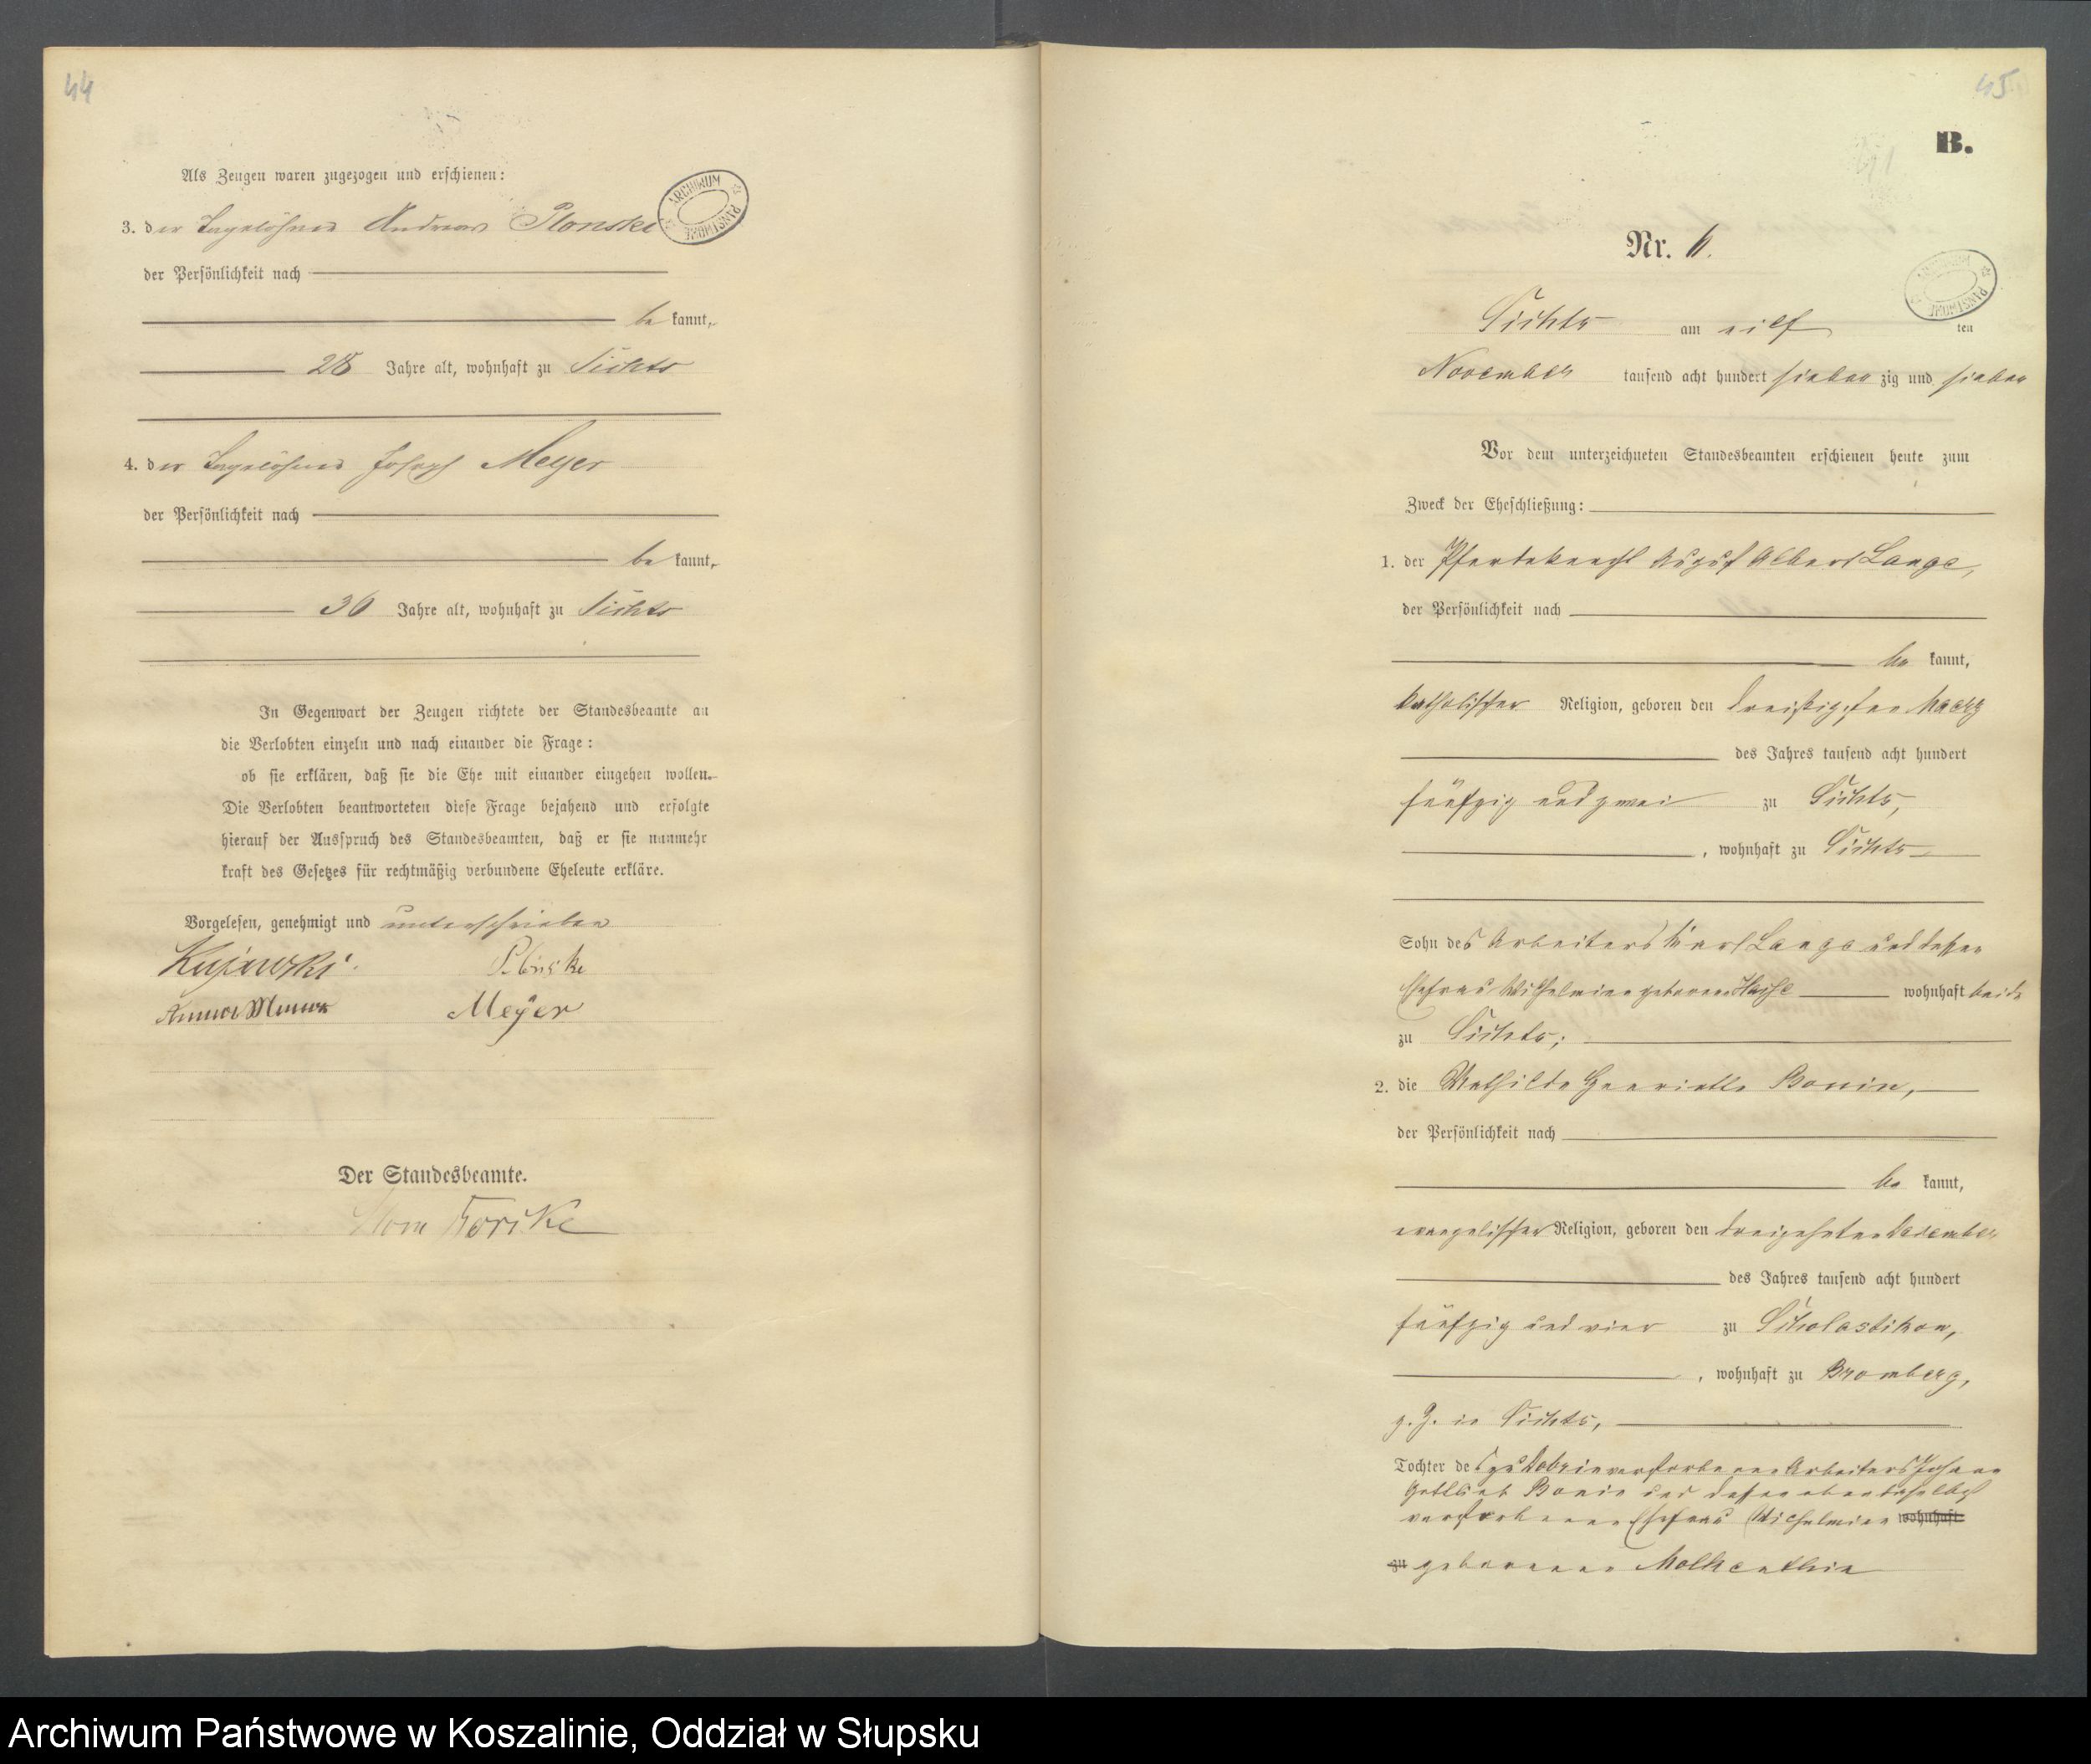 44
Als Zeugen waren zugezogen und erschienen:
ARCHIWUM PAŃSTWOWE
3. der Tagelöhner Andreas Plonske
der Persönlichkeit nach
be kannt,
28 Jahre alt, wohnhaft zu Sichts
4. der Tagelöhner Joseph Meyer
der Persönlichkeit nach
be kannt,
36 Jahre alt, wohnhaft zu Sichts
In Gegenwart der Zeugen richtete der Standesbeamte an
die Verlobten einzeln und nach einander die Frage:
ob sie erklären, daß sie die Ehe mit einander eingehen wollen.
Die Verlobten beantworteten diese Frage bejahend und erfolgte
hierauf der Ausspruch des Standesbeamten, daß er sie nunmehr
kraft des Gesetzes für rechtmäßig verbundene Eheleute erkläre.
Vorgelesen, genehmigt und unterschrieben
Kujawski Plonske
Meyer
Der Standesbeamte.
45
B.
Nr. 6.
ARCHIWUM PAŃSTWOWE
Sichts am eilf ten
November tausend acht hundert sieben zig und sieben
Vor dem unterzeichneten Standesbeamten erschienen heute zum
Zweck der Eheschließung:
1. der Pferdeknecht August Albert Lange,
der Persönlichkeit nach
be kannt,
katholischer Religion, geboren den dreißigsten Maerz
des Jahres tausend acht hundert
fünfzig und zwei zu Sichts,
, wohnhaft zu Sichts
Sohn des Arbeiters Karl Lange und dessen
Ehefrau Wilhelmine geborene wohnhaft beide
zu Sichts;
2. die Mathilde Henriette Bonin,
der Persönlichkeit nach
be kannt,
evangelischer Religion, geboren den dreizehnten Dezember
des Jahres tausend acht hundert
fünfzig und vier zu Scholastikow,
, wohnhaft zu Bromberg,
z. Z. in Sichts,
Tochter des zu Dobrin verstorbenen Arbeiters Johann
Gottlieb Bonin und dessen ebendaselbst
verstorbenen Ehefrau Wilhelmine wohnhaft
zu geborenen Molkenthin
Archiwum Państwowe w Koszalinie, Oddział w Słupsku